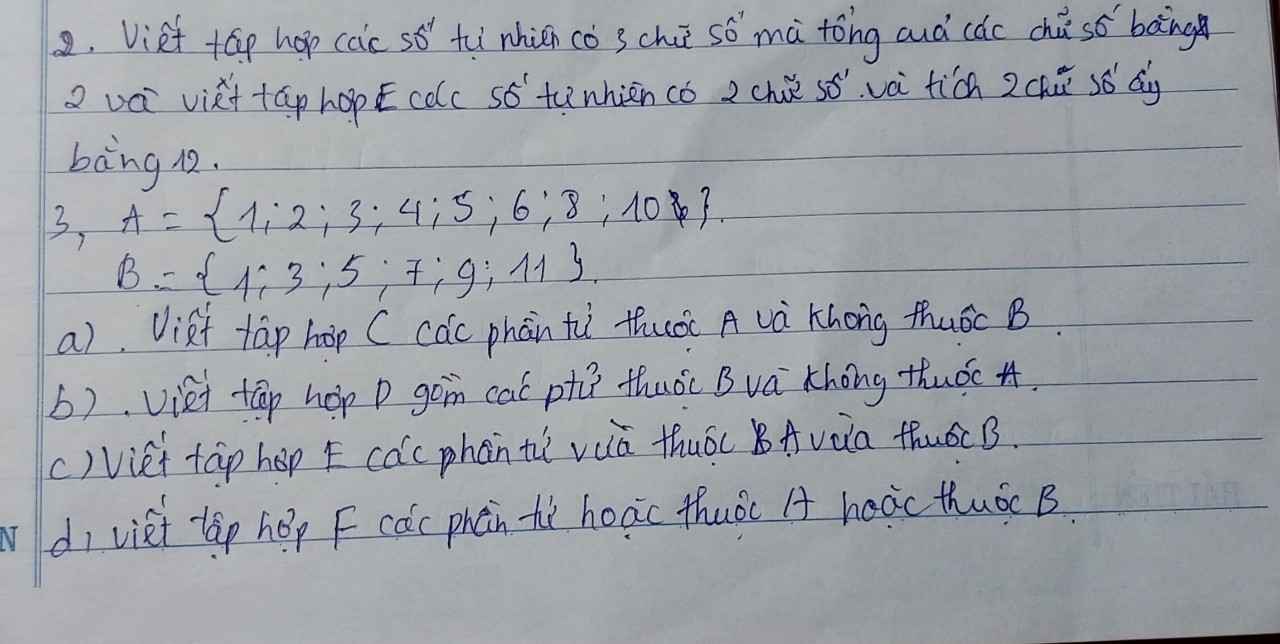 2. Viết tập hợp các số tự nhiên có 3 chữ số mà tổng của các chữ số bằng
2 và viết tập hợp E các số tự nhiên có 2 chữ số và tích 2 chữ số ấy
bằng 12.
3, A = {1; 2; 3; 4; 5; 6; 8; 10}.
B = {1; 3; 5; 7; 9; 11}.
a). Viết tập hợp C các phần tử thuộc A và không thuộc B.
b). Viết tập hợp D gồm các ptử thuộc B và không thuộc A.
c) Viết tập hợp E các phần tử vừa thuộc A vừa thuộc B.
N
d) viết tập hợp F các phần tử hoặc thuộc A hoặc thuộc B.